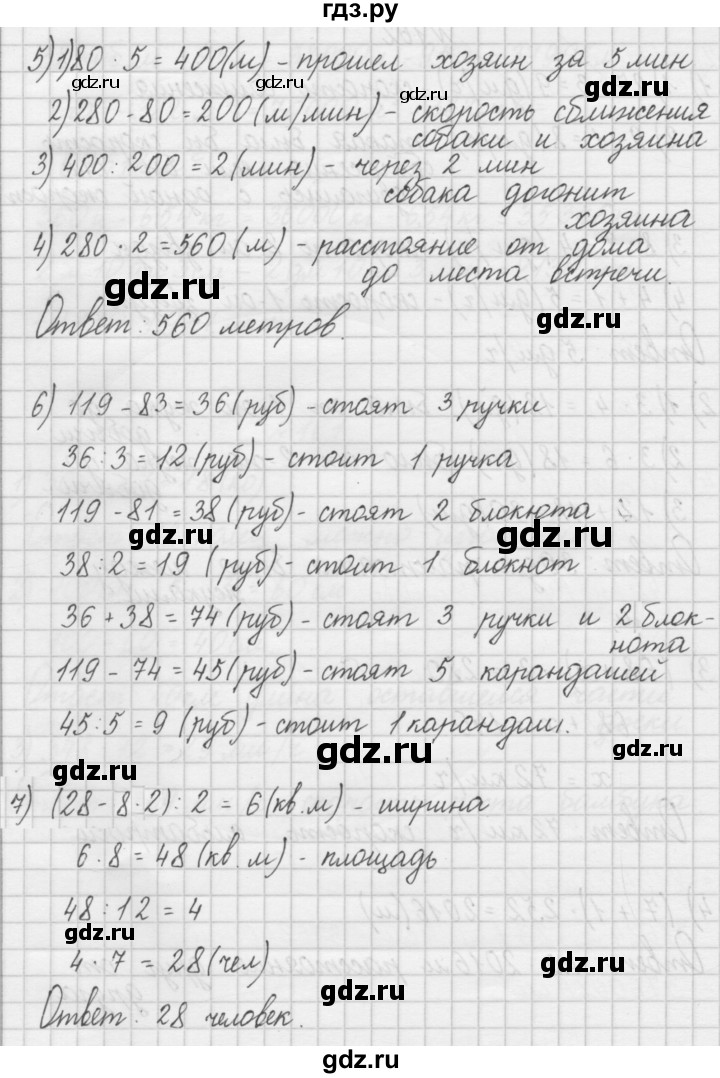 гдз.ру
5) 1) 80 · 5 = 400 (м) - прошел хозяин за 5 мин
gdz.ru gdz.ru gdz.ru gdz.ru
2) 280 - 80 = 200 (м/мин) - скорость сближения
собаки и хозяина
3) 400 : 200 = 2 (мин) - через 2 мин
собака догонит
хозяина
4) 280 · 2 = 560 (м) - расстояние от дома
до места встречи.
gdz.ru gdz.ru
Ответ: 560 метров.
6) 119 - 83 = 36 (руб) - стоят 3 ручки
gdz.ru gdz.ru
36 : 3 = 12 (руб) - стоит 1 ручка
119 - 81 = 38 (руб) - стоят 2 блокнота
gdz.ru gdz.ru
38 : 2 = 19 (руб) - стоит 1 блокнот
36 + 38 = 74 (руб) - стоят 3 ручки и 2 блок-
нота
gdz.ru gdz.ru
119 - 74 = 45 (руб) - стоят 5 карандашей
45 : 5 = 9 (руб) - стоит 1 карандаш.
gdz.ru gdz.ru
gdz.ru
7) (28 - 8 · 2) : 2 = 6 (кв. м) - ширина
6 · 8 = 48 (кв. м) - площадь
gdz.ru
48 : 12 = 4
gdz.ru
4 · 7 = 28 (чел)
gdz.ru
gdz.ru
Ответ: 28 человек.
gdz.ru
gdz.ru